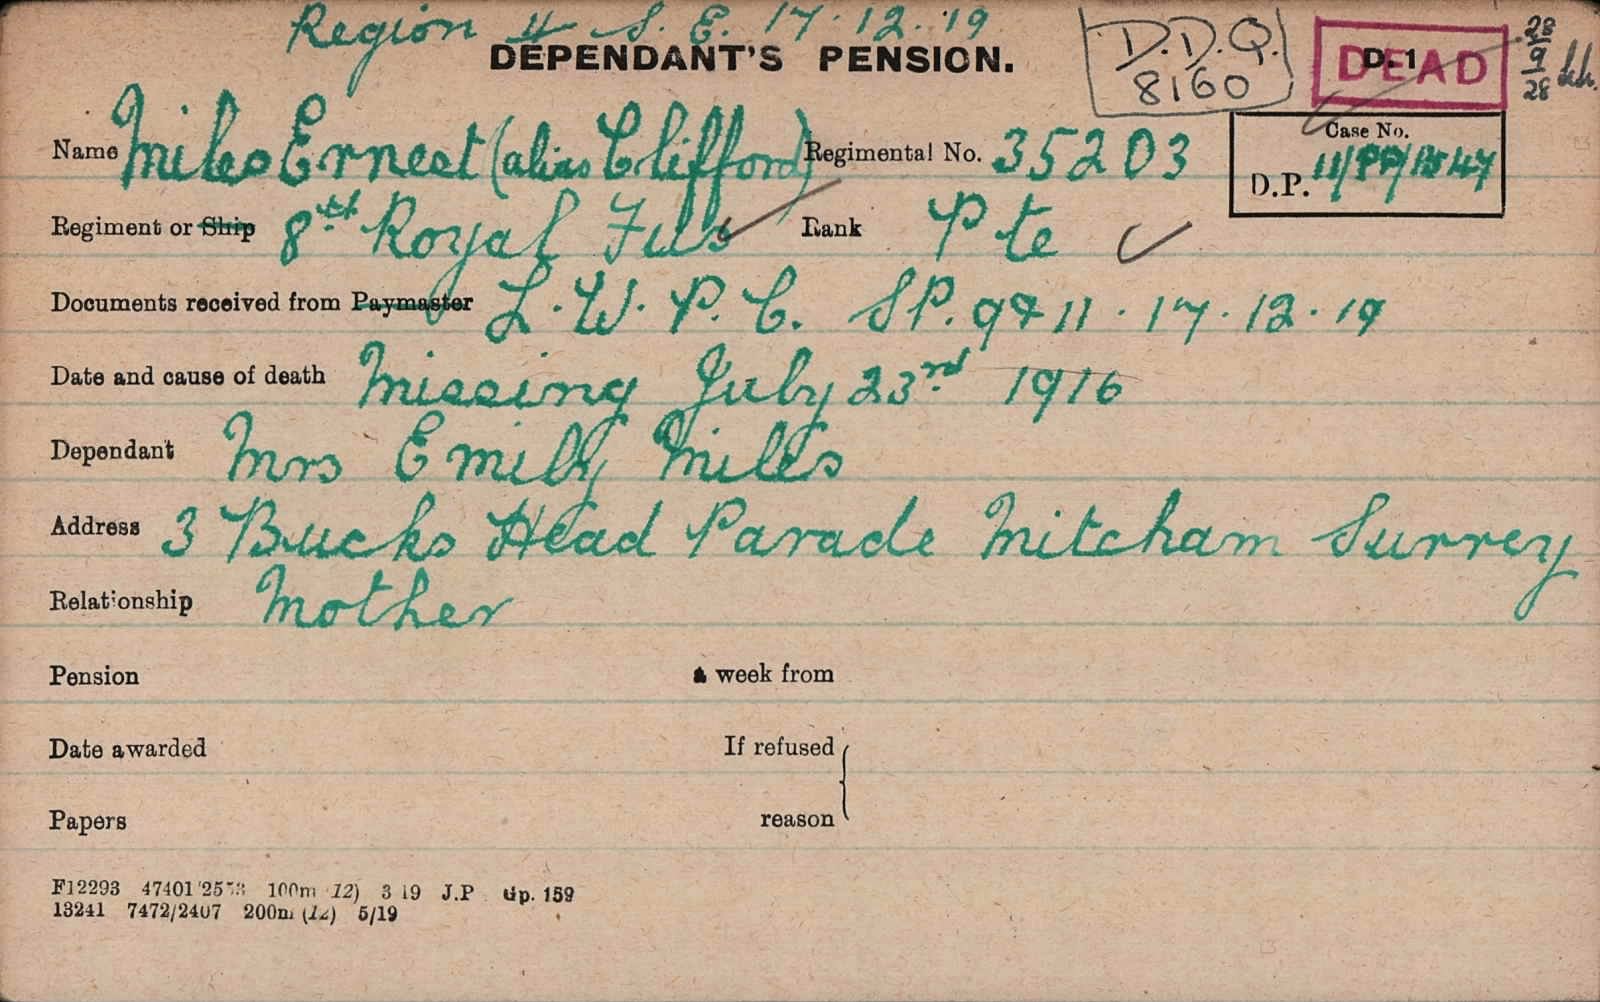 Region 4 S. E. 17.12.19
DEPENDANT'S PENSION.
D.D.Q.
8160
DEAD
D.1
28
9
28
Name Miles Ernest (alias Clifford) Regimental No. 35203
Case No.
D.P.
Regiment or Ship 8th Royal Fus Rank Pte
Documents received from Paymaster L.W.P.C. SP. 9911. 17.12.19
Date and cause of death Missing July 23rd 1916
Dependant Mrs Emily Miles
Address 3 Bucks Head Parade Mitcham Surrey
Relationship Mother
Pension a week from
Date awarded If refused
Papers reason
F12293 47401 100m (12) 3 19 J.P Gp. 159
13241 7472/2407 200m (12) 5/19